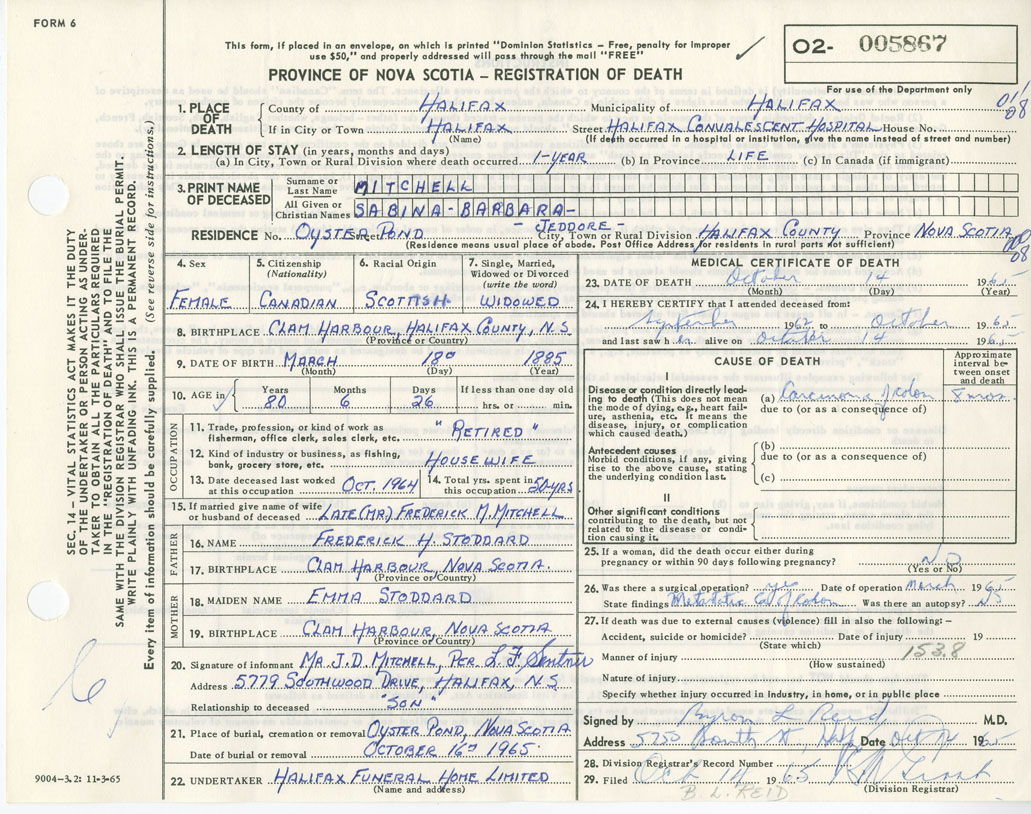 FORM 6
This form, if placed in an envelope, on which is printed "Dominion Statistics – Free, penalty for improper
use $50," and properly addressed will pass through the mail "FREE"
O2- 005867
PROVINCE OF NOVA SCOTIA – REGISTRATION OF DEATH
For use of the Department only
1. PLACE OF DEATH County of HALIFAX Municipality of HALIFAX
If in City or Town HALIFAX Street HALIFAX CONVALESCENT HOSPITAL House No.
(Name) (If death occurred in a hospital or institution, give the name instead of street and number)
2. LENGTH OF STAY (in years, months and days)
(a) In City, Town or Rural Division where death occurred 1-YEAR (b) In Province LIFE (c) In Canada (if immigrant)
3. PRINT NAME OF DECEASED
Surname or Last Name MITCHELL
All Given or Christian Names SABINA-BARBARA-
RESIDENCE No. OYSTER POND Street - JEDDORE - City, Town or Rural Division HALIFAX COUNTY Province NOVA SCOTIA
(Residence means usual place of abode. Post Office Address for residents in rural parts not sufficient)
4. Sex FEMALE
5. Citizenship (Nationality) CANADIAN
6. Racial Origin SCOTTISH
7. Single, Married, Widowed or Divorced (write the word) WIDOWED
8. BIRTHPLACE CLAM HARBOUR, HALIFAX COUNTY, N.S.
(Province or Country)
9. DATE OF BIRTH MARCH 18th 1885
(Month) (Day) (Year)
10. AGE in Years 80 Months 6 Days 26 If less than one day old hrs. or min.
OCCUPATION
11. Trade, profession, or kind of work as fisherman, office clerk, sales clerk, etc. "RETIRED"
12. Kind of industry or business, as fishing, bank, grocery store, etc. HOUSEWIFE
13. Date deceased last worked at this occupation OCT. 1964
14. Total yrs. spent in this occupation 50-YRS
15. If married give name of wife or husband of deceased LATE (MR) FREDERICK M. MITCHELL
FATHER
16. NAME FREDERICK H. STODDARD
17. BIRTHPLACE CLAM HARBOUR, NOVA SCOTIA.
(Province or Country)
MOTHER
18. MAIDEN NAME EMMA STODDARD
19. BIRTHPLACE CLAM HARBOUR, NOVA SCOTIA
(Province or Country)
20. Signature of informant MR. J.D. MITCHELL, PER L.F. Sentner
Address 5779 SOUTHWOOD DRIVE, HALIFAX, N.S.
Relationship to deceased "SON"
21. Place of burial, cremation or removal OYSTER POND, NOVA SCOTIA
Date of burial or removal OCTOBER 16th 1965.
22. UNDERTAKER HALIFAX FUNERAL HOME LIMITED
(Name and address)
MEDICAL CERTIFICATE OF DEATH
23. DATE OF DEATH October 14 1965
(Month) (Day) (Year)
24. I HEREBY CERTIFY that I attended deceased from:
September 1962 to October 1965
and last saw her alive on October 14 1965
CAUSE OF DEATH
Approximate interval between onset and death
I
Disease or condition directly leading to death (This does not mean the mode of dying, e.g., heart failure, asthenia, etc. It means the disease, injury, or complication which caused death.)
(a) Carcinoma of colon 8 mos.
due to (or as a consequence of)
Antecedent causes
Morbid conditions, if any, giving rise to the above cause, stating the underlying condition last.
(b)
due to (or as a consequence of)
(c)
II
Other significant conditions
contributing to the death, but not related to the disease or condition causing it.
25. If a woman, did the death occur either during pregnancy or within 90 days following pregnancy? NO
(Yes or No)
26. Was there a surgical operation? yes Date of operation March 1965
State findings Metastatic Ca of colon Was there an autopsy? No
27. If death was due to external causes (violence) fill in also the following:–
Accident, suicide or homicide? Date of injury 19
(State which)
Manner of injury 153.8
(How sustained)
Nature of injury
Specify whether injury occurred in industry, in home, or in public place
Signed by Byron L Reid M.D.
Address 5755 South St, Hfx Date Oct 14 1965
28. Division Registrar's Record Number
29. Filed Oct 14 1965
(Division Registrar)
B. L. REID
SEC. 14 – VITAL STATISTICS ACT MAKES IT THE DUTY
OF THE UNDERTAKER OR PERSON ACTING AS UNDER-
TAKER TO OBTAIN ALL THE PARTICULARS REQUIRED
IN THE "REGISTRATION OF DEATH" AND TO FILE THE
SAME WITH THE DIVISION REGISTRAR WHO SHALL ISSUE THE BURIAL PERMIT.
WRITE PLAINLY WITH UNFADING INK. THIS IS A PERMANENT RECORD.
Every item of information should be carefully supplied. (See reverse side for instructions.)
9004-3.2: 11-3-65